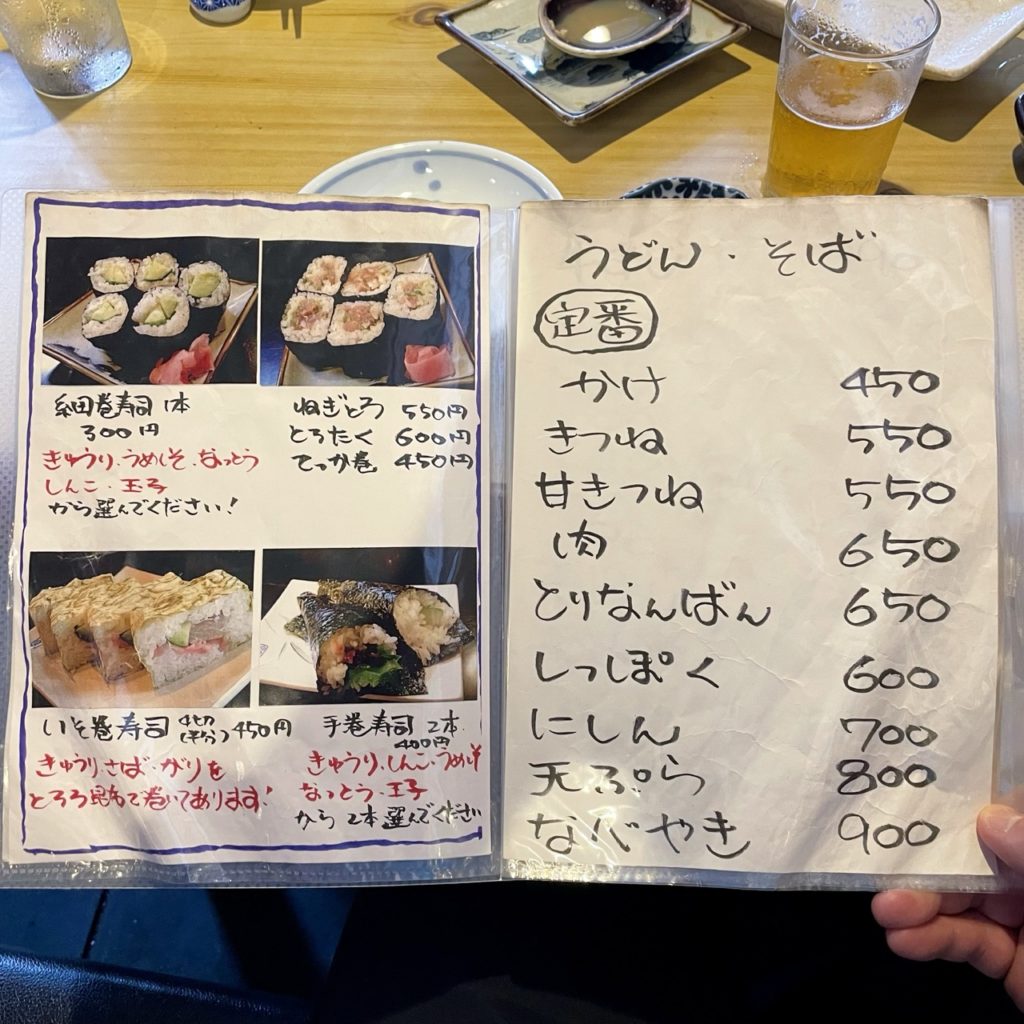 細巻寿司 1本
300円
きゅうり、うめしそ、なっとう
しんこ・玉子
から選んでください!
ねぎとろ 550円
とろたく 600円
てっか巻 450円
いそ巻寿司 4切(半分) 450円
きゅうり、さば・がりを
とろろ昆布で巻いてあります!
手巻寿司 2本
400円
きゅうり、しんこ・うめしそ
なっとう・玉子
から2本選んでください
うどん・そば
定番
かけ 450
きつね 550
甘きつね 550
肉 650
とりなんばん 650
しっぽく 600
にしん 700
天ぷら 800
なべやき 900